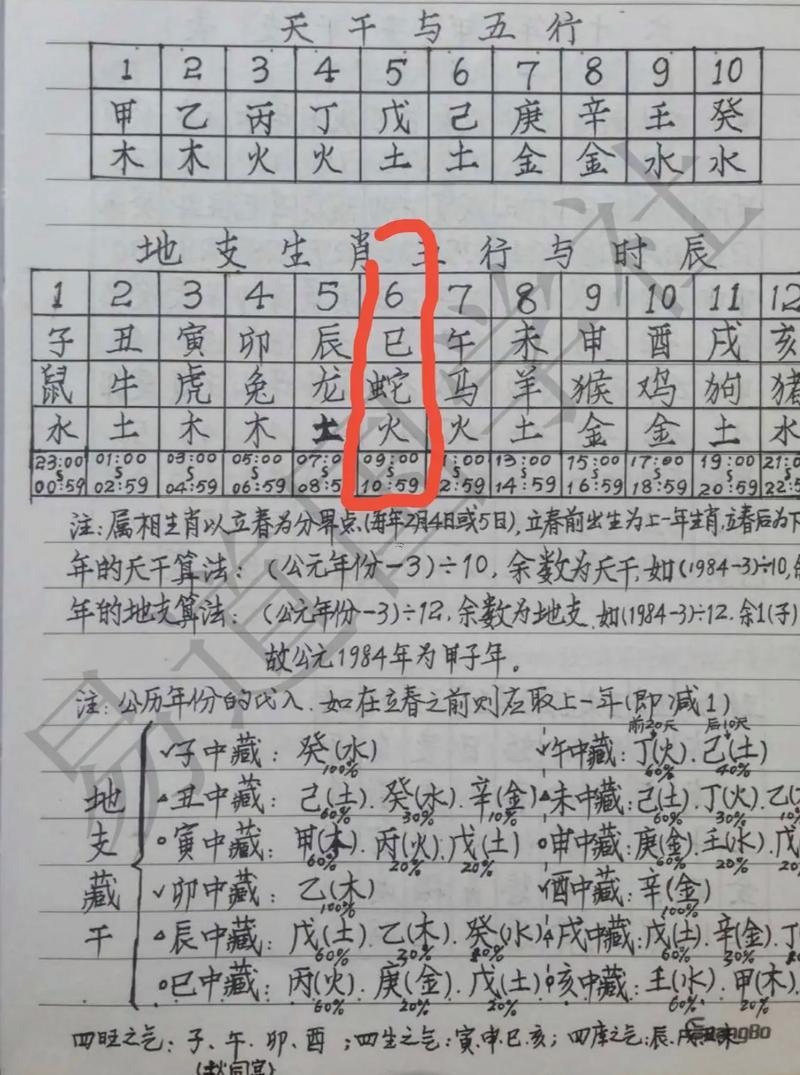 天干与五行
1 2 3 4 5 6 7 8 9 10
甲 乙 丙 丁 戊 己 庚 辛 壬 癸
木 木 火 火 土 土 金 金 水 水
地支生肖五行与时辰
1 2 3 4 5 6 7 8 9 10 11 12
子 丑 寅 卯 辰 巳 午 未 申 酉 戌 亥
鼠 牛 虎 兔 龙 蛇 马 羊 猴 鸡 狗 猪
水 土 木 木 土 火 火 土 金 金 土 水
23:00 01:00 03:00 05:00 07:0 09:00 1:00 13:00 15:00 17:00 19:00 21:0
00:59 02:59 04:59 06:59 08:5 10:59 2:59 14:59 16:59 18:59 20:59 22:5
注:属相生肖以立春为分界点,(每年2月4日或5日),立春前出生为上一年生肖,立春后为下
年的天干算法:(公元年份-3)÷10,余数为天干,如(1984-3)÷10,
年的地支算法:(公元年份-3)÷12,余数为地支.如(1984-3)÷12.余1(子)
故公元1984年为甲子年。
注:公历年份的代入.如在立春之前则应取上一年(即减1)
前20天 后10天
子中藏:癸(水) 午中藏:丁(火).己(土)
100% 60% 40%
丑中藏:己(土).癸(水).辛(金) 未中藏:己(土).丁(火).乙
60% 30% 10% 60% 30% 10%
寅中藏:甲(木).丙(火).戊(土) 申中藏:庚(金).壬(水).戊
60% 20% 20% 60% 20% 20%
卯中藏:乙(木) 酉中藏:辛(金)
100% 100%
辰中藏:戊(土).乙(木).癸(水) 戌中藏:戊(土).辛(金).丁
60% 30% 60% 30%
巳中藏:丙(火).庚(金).戊(土) 亥中藏:壬(水).甲(木).
60% 20% 20% 60% 20%
地支藏干
四旺之气:子、午、卯、酉;四生之气:寅.申.巳.亥;四库之气:辰.戌.丑.未
易道国学社